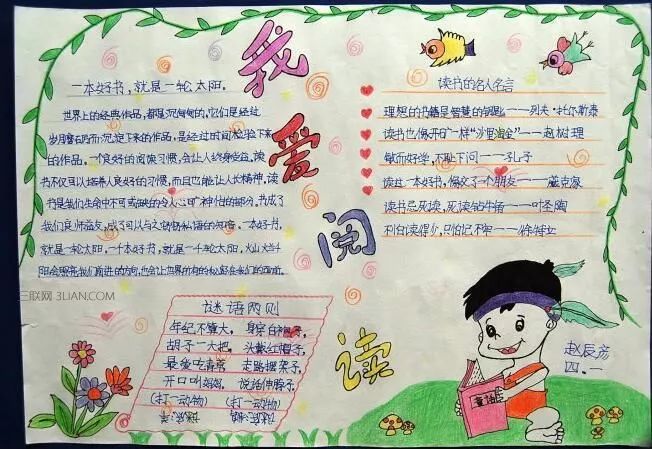 我爱阅读
一本好书，就是一轮太阳。
世界上的经典作品，都是沉甸甸的，它们是经过
岁月磨石乃而沉淀下来的作品，是经过时间检验下来
的作品。一个良好的阅读习惯，会让人终身受益。读
书不仅可以培养人良好的习惯，而且也能让人长精神，读
书是我们生命中不可或缺的令人心旷神怡的部分，书成了
我们良师益友，成了可以与之窃窃私语的知音。一本好书，
就是一轮太阳，一千本好书，就是一千轮太阳。火山火太
阳会照亮我们前进的方向，也会让世界所有的秘密在我们的面前。
读书的名人名言
理想的书籍是智慧的钥匙——列夫·托尔斯泰
读书也像开矿一样"沙里淘金"——赵树理
敏而好学，不耻下问——孔子
读过一本好书，像交了一个朋友——臧克家
读书忌死读，死读钻牛角——叶圣陶
不怕读得少，只怕记不牢——徐特立
谜语两则
年纪不算大，身穿白袍子，
胡子一大把，头戴红帽子，
最爱吃青菜 走路摆架子，
开口叫妈妈 说话伸脖子，
(打一动物) (打一动物)
赵辰彦
四.一
童话
三联网 3LIAN.COM